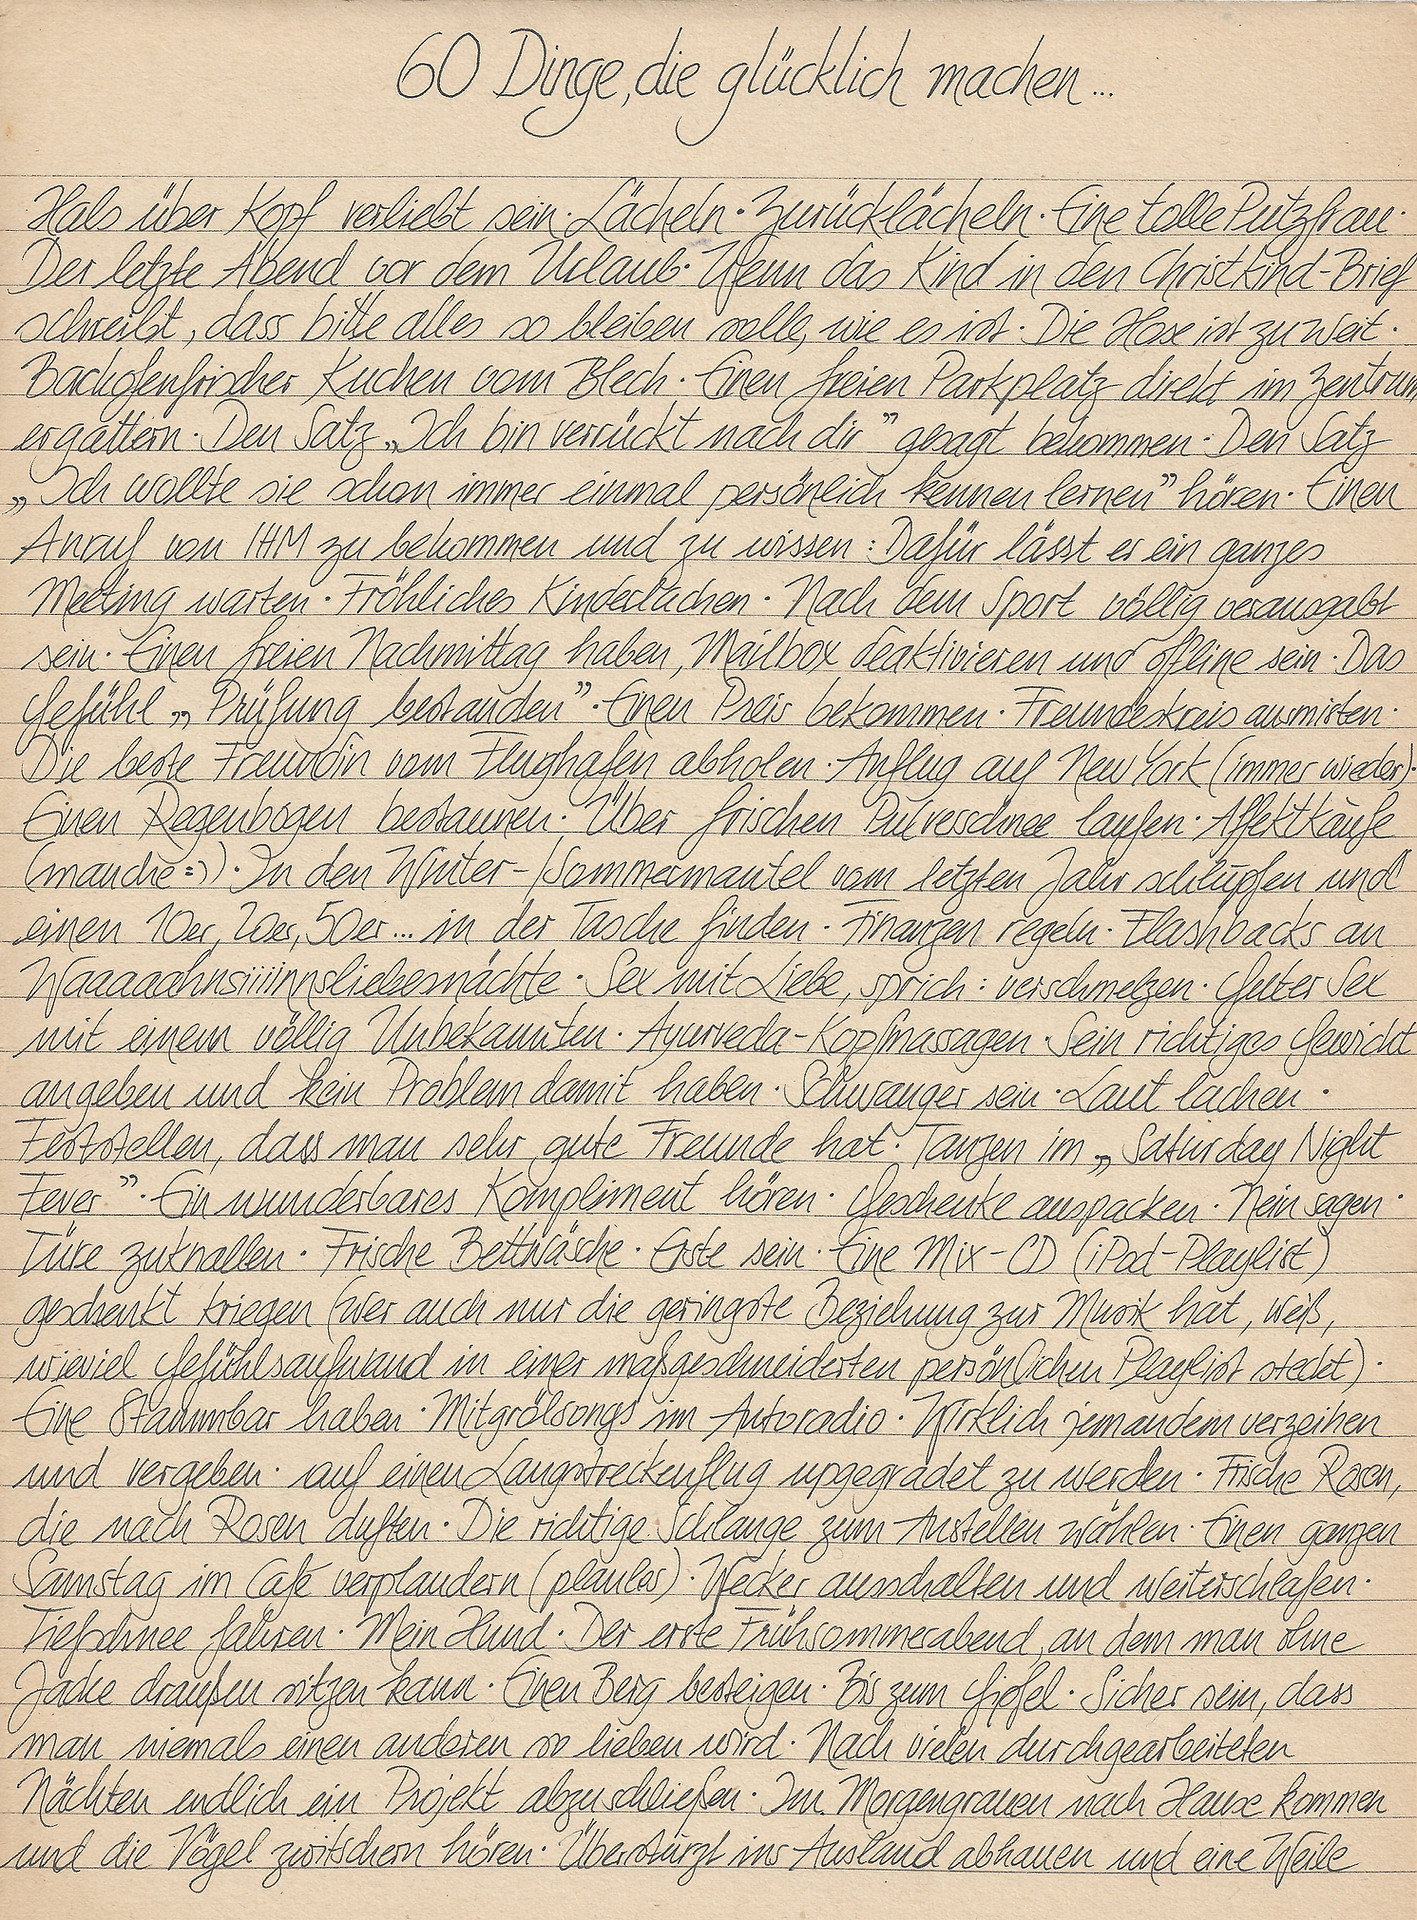 60 Dinge, die glücklich machen...
Hals über Kopf verliebt sein · Lächeln · Zurücklächeln · Eine tolle Putzfrau ·
Der letzte Abend vor dem Urlaub · Wenn das Kind in den Christkind-Brief
schreibt, dass bitte alles so bleiben solle, wie es ist · Die Hose ist zu weit ·
Backofenfrischer Kuchen vom Blech · Einen freien Parkplatz direkt im Zentrum
ergattern · Den Satz „Ich bin verrückt nach dir” gesagt bekommen · Den Satz
„Ich wollte sie schon immer einmal persönlich kennen lernen” hören · Einen
Anruf von IHM zu bekommen und zu wissen: Dafür lässt er ein ganzes
Meeting warten · Fröhliches Kinderlachen · Nach dem Sport völlig verausgabt
sein · Einen freien Nachmittag haben, Mailbox deaktivieren und offline sein · Das
Gefühl „Prüfung bestanden” · Einen Preis bekommen · Freundeskreis ausmisten ·
Die beste Freundin vom Flughafen abholen · Anflug auf New York (immer wieder) ·
Einen Regenbogen bestaunen · Über frischen Pulverschnee laufen · Affektkäufe
(manche =)) · In den Winter-/Sommermantel vom letzten Jahr schlüpfen und
einen 10er, 20er, 50er... in der Tasche finden · Finanzen regeln · Flashbacks an
Waaaaahnsiiiinnsliebesnächte · Sex mit Liebe, sprich: verschmelzen · Geiler Sex
mit einem völlig Unbekannten · Ayurveda-Kopfmassagen · Sein richtiges Gewicht
angeben und kein Problem damit haben · Schwanger sein · Laut lachen ·
Feststellen, dass man sehr gute Freunde hat · Tanzen im „Saturday Night
Fever” · Ein wunderbares Kompliment hören · Geschenke auspacken · Nein sagen ·
Türe zuknallen · Frische Bettwäsche · Erste sein · Eine Mix-CD (iPod-Playlist)
geschenkt kriegen (wer auch nur die geringste Beziehung zur Musik hat, weiß,
wieviel Gefühlsaufwand in einer maßgeschneiderten persönlichen Playlist steckt) ·
Eine Stammbar haben · Mitgrölsongs im Autoradio · Wirklich jemandem verzeihen
und vergeben · auf einen Langstreckenflug upgegradet zu werden · Frische Rosen,
die nach Rosen duften · Die richtige Schlange zum Anstellen wählen · Einen ganzen
Samstag im Café verplaudern (planlos) · Wecker ausschalten und weiterschlafen ·
Tiefschnee fahren · Mein Hund · Der erste Frühsommerabend, an dem man ohne
Jacke draußen sitzen kann · Einen Berg besteigen · Bis zum Gipfel · Sicher sein, dass
man niemals einen anderen so lieben wird · Nach vielen durchgearbeiteten
Nächten endlich ein Projekt abzuschließen · Im Morgengrauen nach Hause kommen
und die Vögel zwitschern hören · Überstürzt ins Ausland abhauen und eine Weile